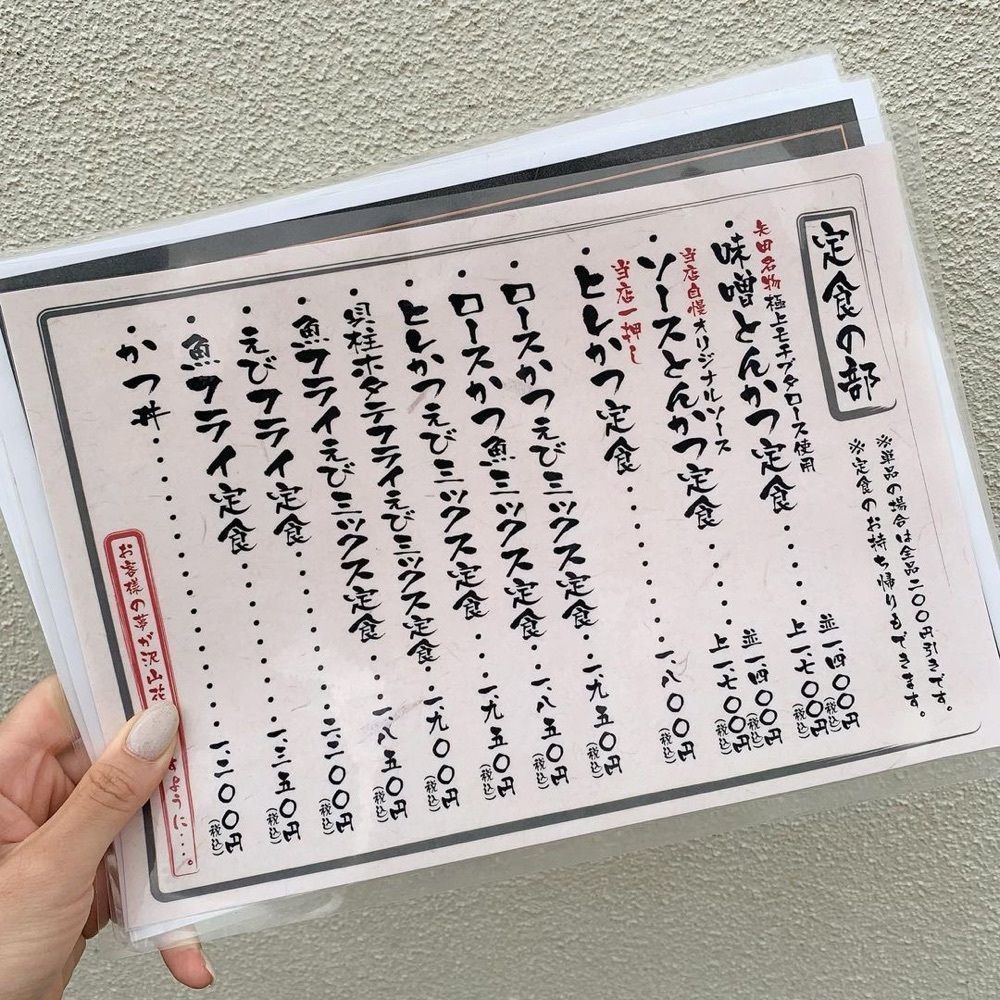 定食の部
※単品の場合は全品二〇〇円引きです。
※定食のお持ち帰りもできます。
矢田名物 極上モチブタロース使用
・味噌とんかつ定食・・・・・並一、四〇〇円(税込)
上一、七〇〇円(税込)
当店自慢オリジナルソース
・ソースとんかつ定食・・・・並一、四〇〇円(税込)
上一、七〇〇円(税込)
当店一押し
・ヒレかつ定食・・・・・・・一、八〇〇円(税込)
・ロースかつえびミックス定食・・一、九五〇円(税込)
・ロースかつ魚ミックス定食・・・一、八五〇円(税込)
・ヒレかつえびミックス定食・・・一、九五〇円(税込)
・貝柱ホタテフライえびミックス定食・・一、九〇〇円(税込)
・魚フライえびミックス定食・・・一、八五〇円(税込)
・えびフライ定食・・・・・・・二、二〇〇円(税込)
・魚フライ定食・・・・・・・・一、三五〇円(税込)
・かつ丼・・・・・・・・・・・一、二〇〇円(税込)
お客様の華が沢山花 すように…。